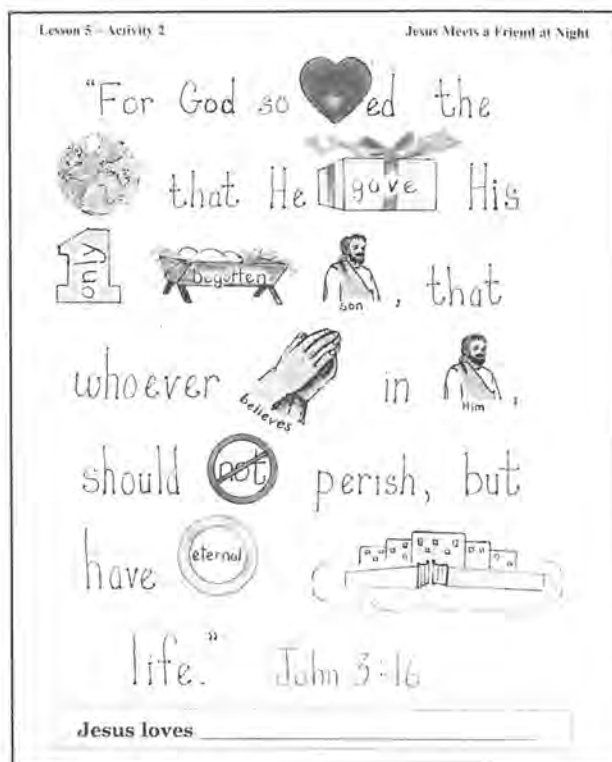 Lesson 5 – Activity 2 Jesus Meets a Friend at Night
"For God so ed the
that He gave His
1 only begotten son, that
whoever believes in Him,
should not perish, but
have eternal
life." John 3:16
Jesus loves